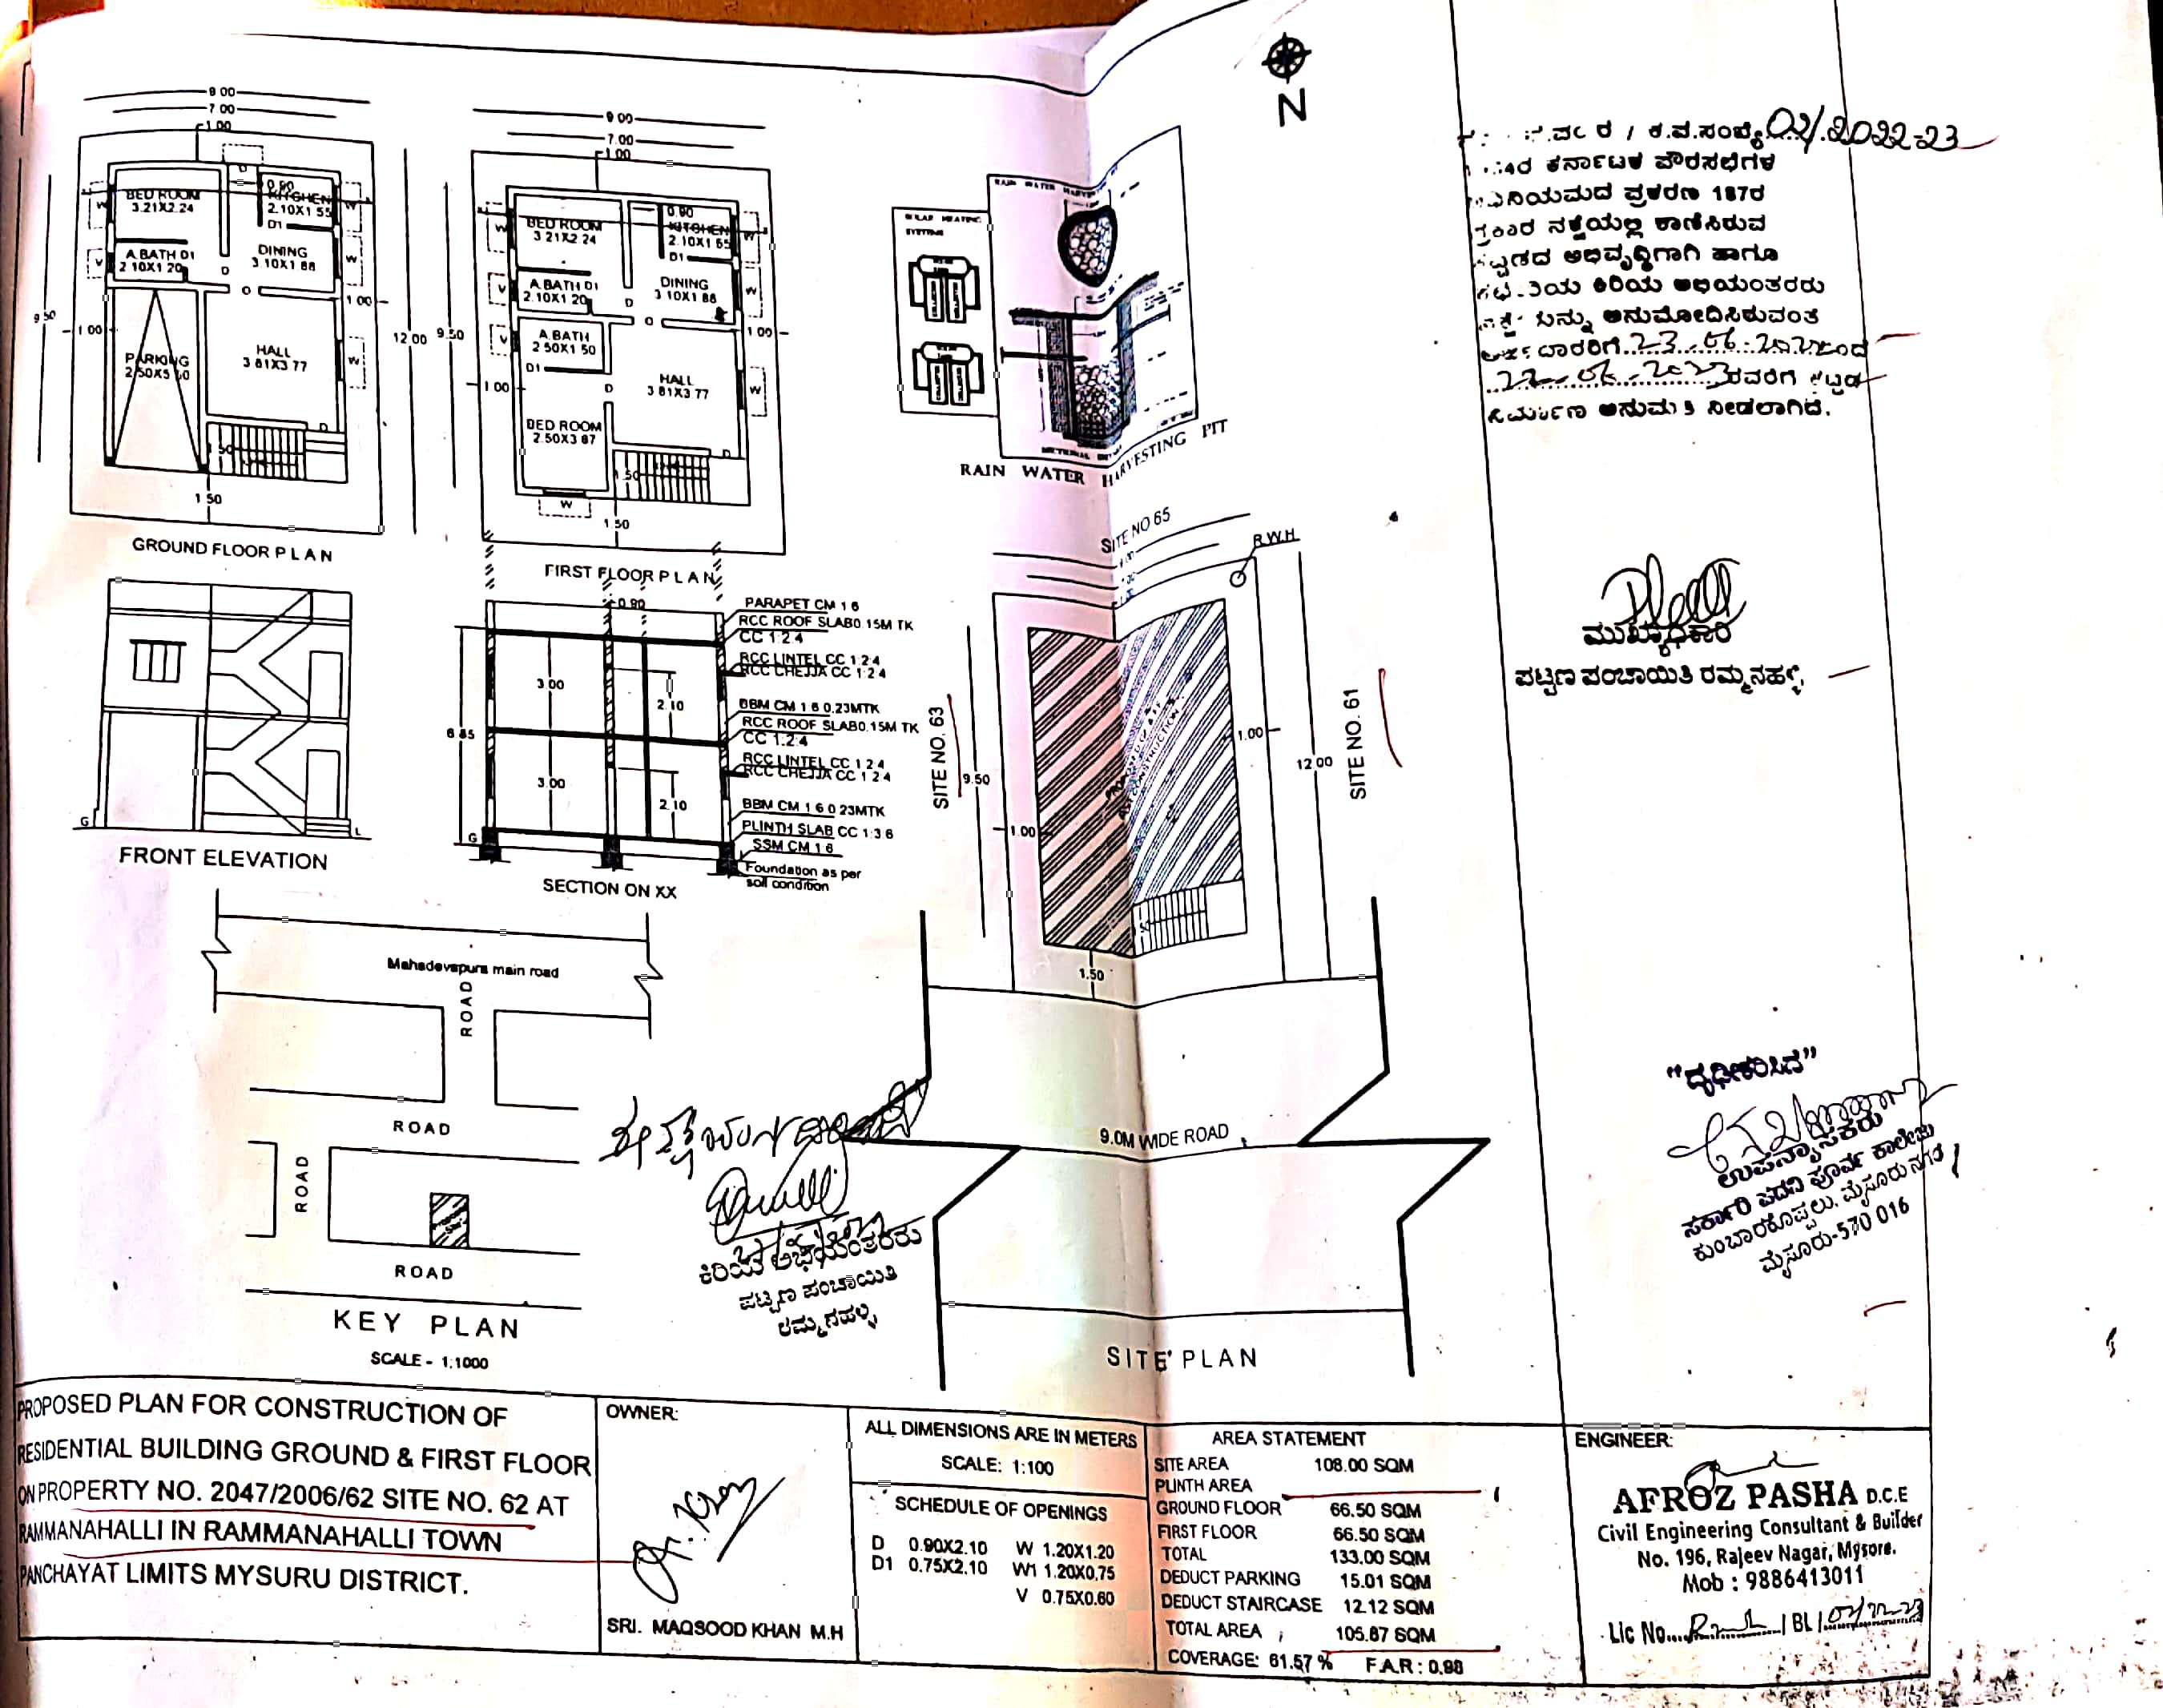 9.00
7.00
1.00
BED ROOM
3.21X2.24
0.90
KITCHEN
2.10X1.55
D1
A.BATH D1
2.10X1.20
DINING
3.10X1.88
PARKING
HALL
3.81X3.77
9.50
1.00
1.00
12.00
1.50
1.50
GROUND FLOOR PLAN
9.00
7.00
1.00
BED ROOM
3.21X2.24
0.90
KITCHEN
2.10X1.55
D1
A.BATH D1
2.10X1.20
DINING
3.10X1.88
A.BATH
2.50X1.50
D1
HALL
3.81X3.77
BED ROOM
2.50X3.87
9.50
1.00
1.00
1.50
W
1.50
FIRST FLOOR PLAN
SOLAR HEATING
SYSTEM
RAIN WATER HARVESTING PIT
N
FRONT ELEVATION
G
L
0.90
PARAPET CM 1:6
RCC ROOF SLAB0.15M TK
CC 1:2:4
RCC LINTEL CC 1:2:4
RCC CHEJJA CC 1:2:4
BBM CM 1:6 0.23MTK
RCC ROOF SLAB0.15M TK
CC 1:2:4
RCC LINTEL CC 1:2:4
RCC CHEJJA CC 1:2:4
BBM CM 1:6 0.23MTK
PLINTH SLAB CC 1:3:6
SSM CM 1:6
Foundation as per
soil condition
6.85
3.00
2.10
3.00
2.10
G
SECTION ON XX
SITE NO 65
R.W.H
SITE NO. 63
9.50
1.00
1.00
12.00
SITE NO. 61
1.50
9.0M WIDE ROAD
SITE PLAN
Mahadevapura main road
ROAD
ROAD
ROAD
ROAD
KEY PLAN
SCALE - 1:1000
ಕಿರಿಯ ಅಭಿಯಂತರರು
ಪಟ್ಟಣ ಪಂಚಾಯಿತಿ
ರಮ್ಮನಹಳ್ಳಿ
ಕ.ವ.ಸಂಖ್ಯೆ 02/2022-23
ಕರ್ನಾಟಕ ಪೌರಸಭೆಗಳ
ಪ್ರಕರಣ 187ರ
ನಕ್ಷೆಯಲ್ಲಿ ಕಾಣಿಸಿರುವ
ಅಭಿವೃದ್ಧಿಗಾಗಿ ಹಾಗೂ
ಕಿರಿಯ ಅಭಿಯಂತರರು
ಅನುಮೋದಿಸಿರುವಂತೆ
23-06-2022ರಿಂದ
22-06-2023ರವರೆಗೆ ಕಟ್ಟಡ
ನಿರ್ಮಾಣ ಅನುಮತಿ ನೀಡಲಾಗಿದೆ.
ಮುಖ್ಯಾಧಿಕಾರಿ
ಪಟ್ಟಣ ಪಂಚಾಯಿತಿ ರಮ್ಮನಹಳ್ಳಿ
"ದೃಢೀಕರಿಸಿದೆ"
ಉಪನ್ಯಾಸಕರು
ಸರ್ಕಾರಿ ಪದವಿ ಪೂರ್ವ ಕಾಲೇಜು
ಕುಂಬಾರಕೊಪ್ಪಲು, ಮೈಸೂರು ನಗರ
ಮೈಸೂರು-570 016
PROPOSED PLAN FOR CONSTRUCTION OF
RESIDENTIAL BUILDING GROUND & FIRST FLOOR
ON PROPERTY NO. 2047/2006/62 SITE NO. 62 AT
RAMMANAHALLI IN RAMMANAHALLI TOWN
PANCHAYAT LIMITS MYSURU DISTRICT.
OWNER:
SRI. MAQSOOD KHAN M.H
ALL DIMENSIONS ARE IN METERS
SCALE: 1:100
SCHEDULE OF OPENINGS
D 0.90X2.10 W 1.20X1.20
D1 0.75X2.10 W1 1.20X0.75
V 0.75X0.60
AREA STATEMENT
SITE AREA 108.00 SQM
PLINTH AREA
GROUND FLOOR 66.50 SQM
FIRST FLOOR 66.50 SQM
TOTAL 133.00 SQM
DEDUCT PARKING 15.01 SQM
DEDUCT STAIRCASE 12.12 SQM
TOTAL AREA 105.87 SQM
COVERAGE: 61.57 % F.A.R : 0.98
ENGINEER:
AFROZ PASHA D.C.E
Civil Engineering Consultant & Builder
No. 196, Rajeev Nagar, Mysore.
Mob : 9886413011
Lic No.